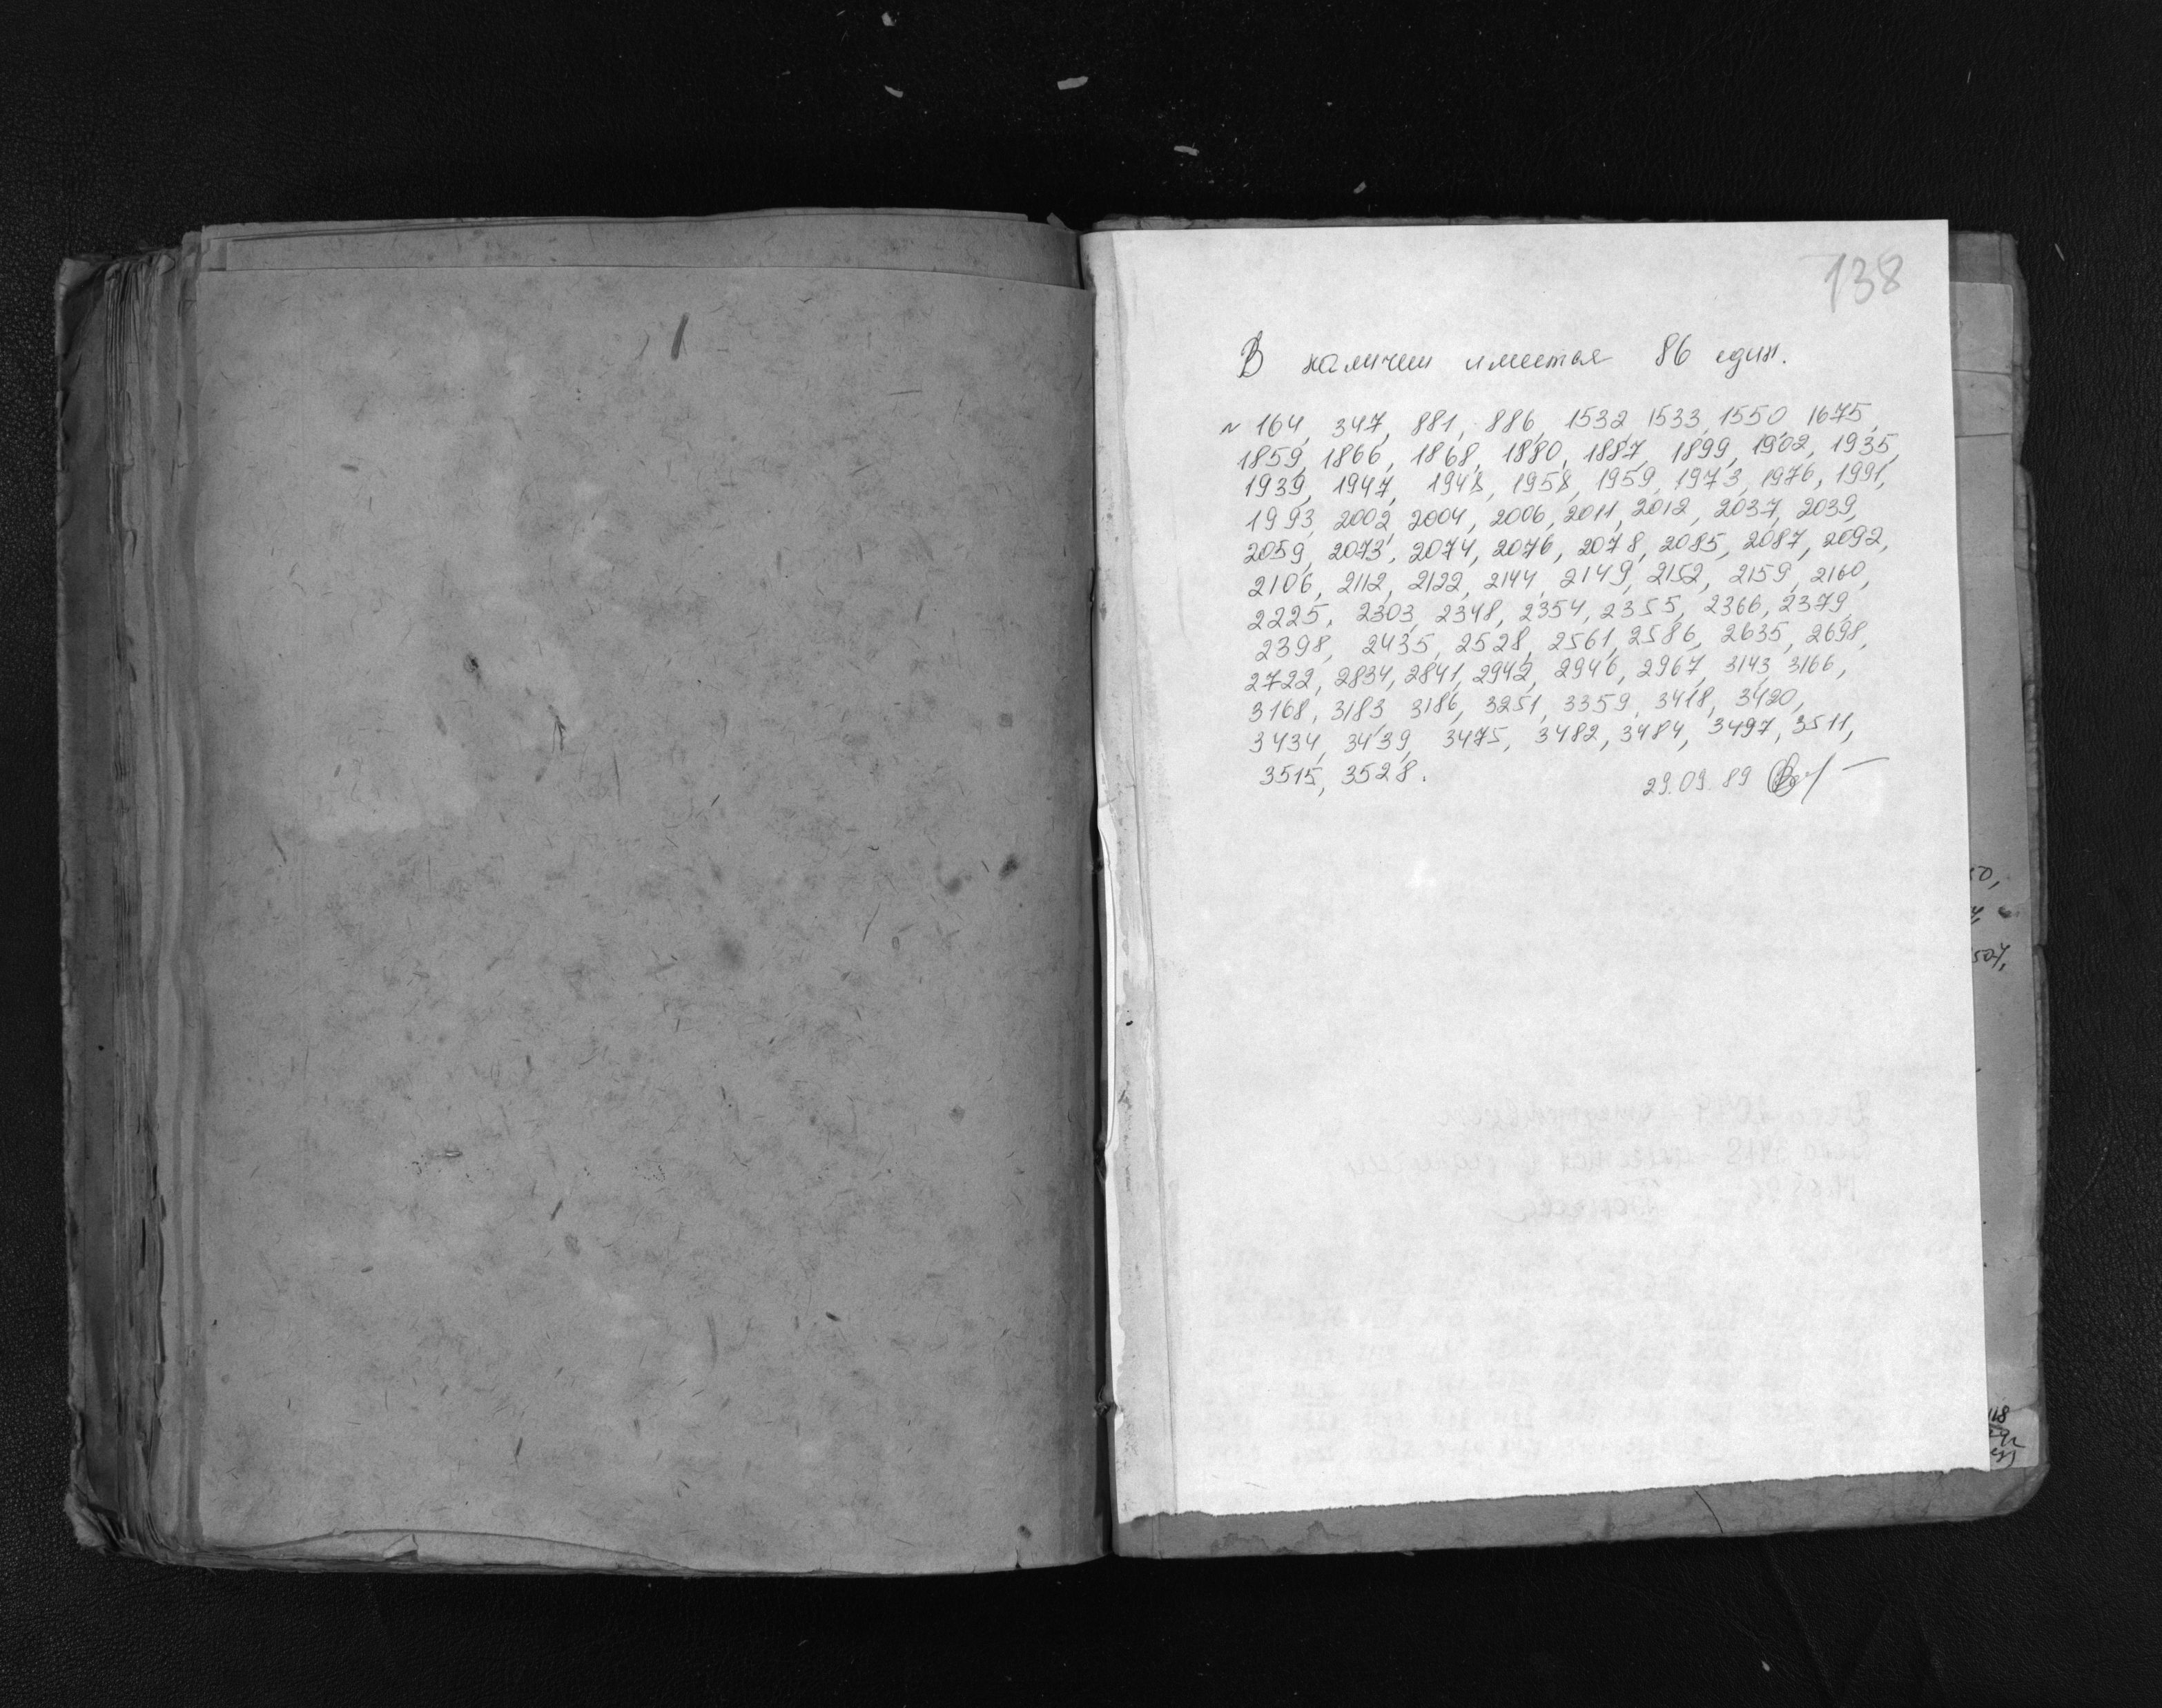 138
В наличии имеется 86 един.
№ 164, 347, 881, 886, 1532, 1533, 1550, 1675,
1859, 1866, 1868, 1880, 1887, 1899, 1902, 1935,
1939, 1947, 1948, 1958, 1959, 1973, 1976, 1991,
1993, 2002, 2004, 2006, 2011, 2012, 2037, 2039,
2059, 2073, 2074, 2076, 2078, 2085, 2087, 2092,
2106, 2112, 2122, 2144, 2149, 2152, 2159, 2160,
2225, 2303, 2348, 2354, 2355, 2366, 2379,
2398, 2435, 2528, 2561, 2586, 2635, 2698,
2722, 2834, 2841, 2942, 2946, 2967, 3143, 3166,
3168, 3183, 3186, 3251, 3359, 3418, 3420,
3434, 3439, 3475, 3482, 3484, 3497, 3511,
3515, 3528.
29.09.89